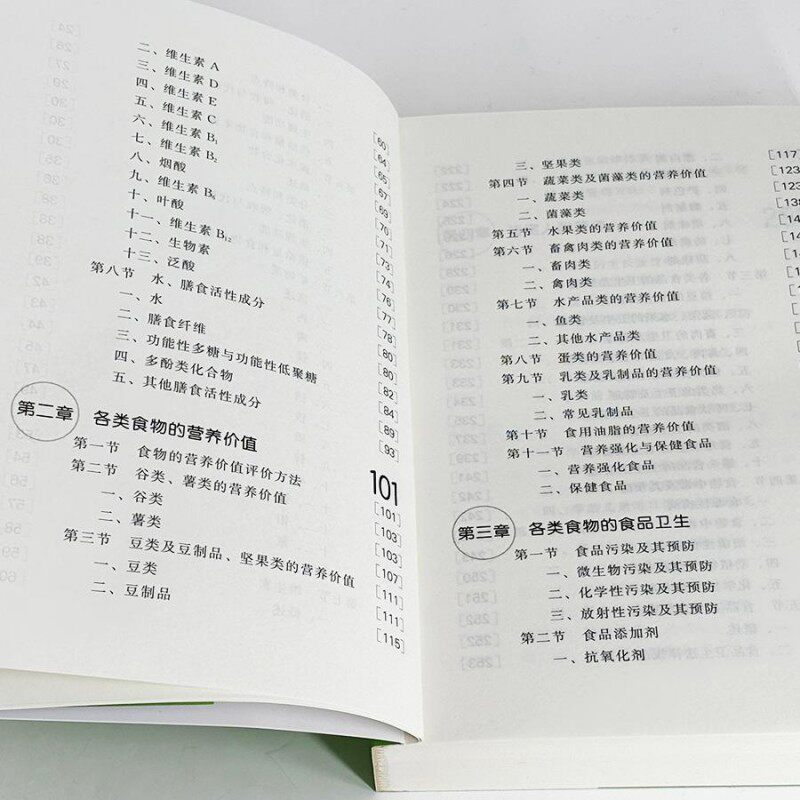 二、维生素 A [60]
三、维生素 D [64]
四、维生素 E [65]
五、维生素 C [67]
六、维生素 B₁ [69]
七、维生素 B₂ [70]
八、烟酸 [71]
九、维生素 B₆ [73]
十、叶酸 [74]
十一、维生素 B₁₂ [76]
十二、生物素 [77]
十三、泛酸 [78]
第八节 水、膳食活性成分 [80]
一、水 [80]
二、膳食纤维 [82]
三、功能性多糖与功能性低聚糖 [84]
四、多酚类化合物 [89]
五、其他膳食活性成分 [93]
第二章 各类食物的营养价值 101
第一节 食物的营养价值评价方法 [101]
第二节 谷类、薯类的营养价值 [103]
一、谷类 [103]
二、薯类 [107]
第三节 豆类及豆制品、坚果类的营养价值 [111]
一、豆类 [111]
二、豆制品 [115]
三、坚果类 [117]
第四节 蔬菜类及菌藻类的营养价值 [123
一、蔬菜类 [123
二、菌藻类 [138
第五节 水果类的营养价值
第六节 畜禽肉类的营养价值
一、畜肉类
二、禽肉类
第七节 水产品类的营养价值
一、鱼类
二、其他水产品类
第八节 蛋类的营养价值
第九节 乳类及乳制品的营养价值
一、乳类
二、常见乳制品
第十节 食用油脂的营养价值
第十一节 营养强化与保健食品
一、营养强化食品
二、保健食品
第三章 各类食物的食品卫生
第一节 食品污染及其预防
一、微生物污染及其预防
二、化学性污染及其预防
三、放射性污染及其预防
第二节 食品添加剂
一、抗氧化剂